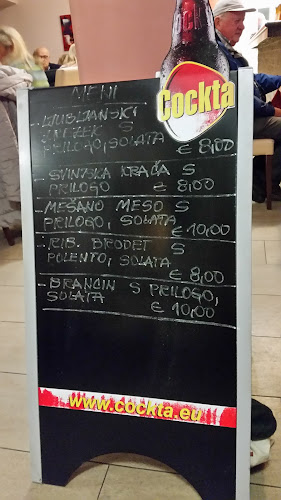 Cockta
MENI
- LJUBLJANSKI
ZREZEK S
PRILOGO, SOLATA
€ 8,00
- SVINJSKA KRAČA S
PRILOGO € 8,00
- MEŠANO MESO S
PRILOGO, SOLATA
€ 10,00
- RIB. BRODET S
POLENTO, SOLATA
€ 8,00
- BRANCIN S PRILOGO,
SOLATA
€ 10,00
www.cockta.eu